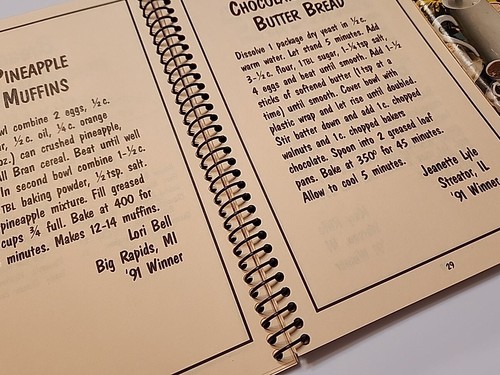 PINEAPPLE
MUFFINS
combine 2 eggs, ½ c.
½ c. oil, ¼ c. orange
can crushed pineapple,
Bran cereal. Beat until well
In second bowl combine 1-½ c.
TBL baking powder, ½ tsp. salt.
pineapple mixture. Fill greased
cups ¾ full. Bake at 400 for
minutes. Makes 12-14 muffins.
Lori Bell
Big Rapids, MI
'91 Winner
BUTTER BREAD
Dissolve 1 package dry yeast in ½ c.
warm water. Let stand 5 minutes. Add
3-½ c. flour, 1 TBL sugar, 1-¼ tsp salt,
4 eggs and beat until smooth. Add 1-½
sticks of softened butter (1 tsp at a
time) until smooth. Cover bowl with
plastic wrap and let rise until doubled.
Stir batter down and add 1 c. chopped
walnuts and 1 c. chopped bakers
chocolate. Spoon into 2 greased loaf
pans. Bake at 350° for 45 minutes.
Allow to cool 5 minutes.
Jeanette Lyle
Streator, IL
'91 Winner
29